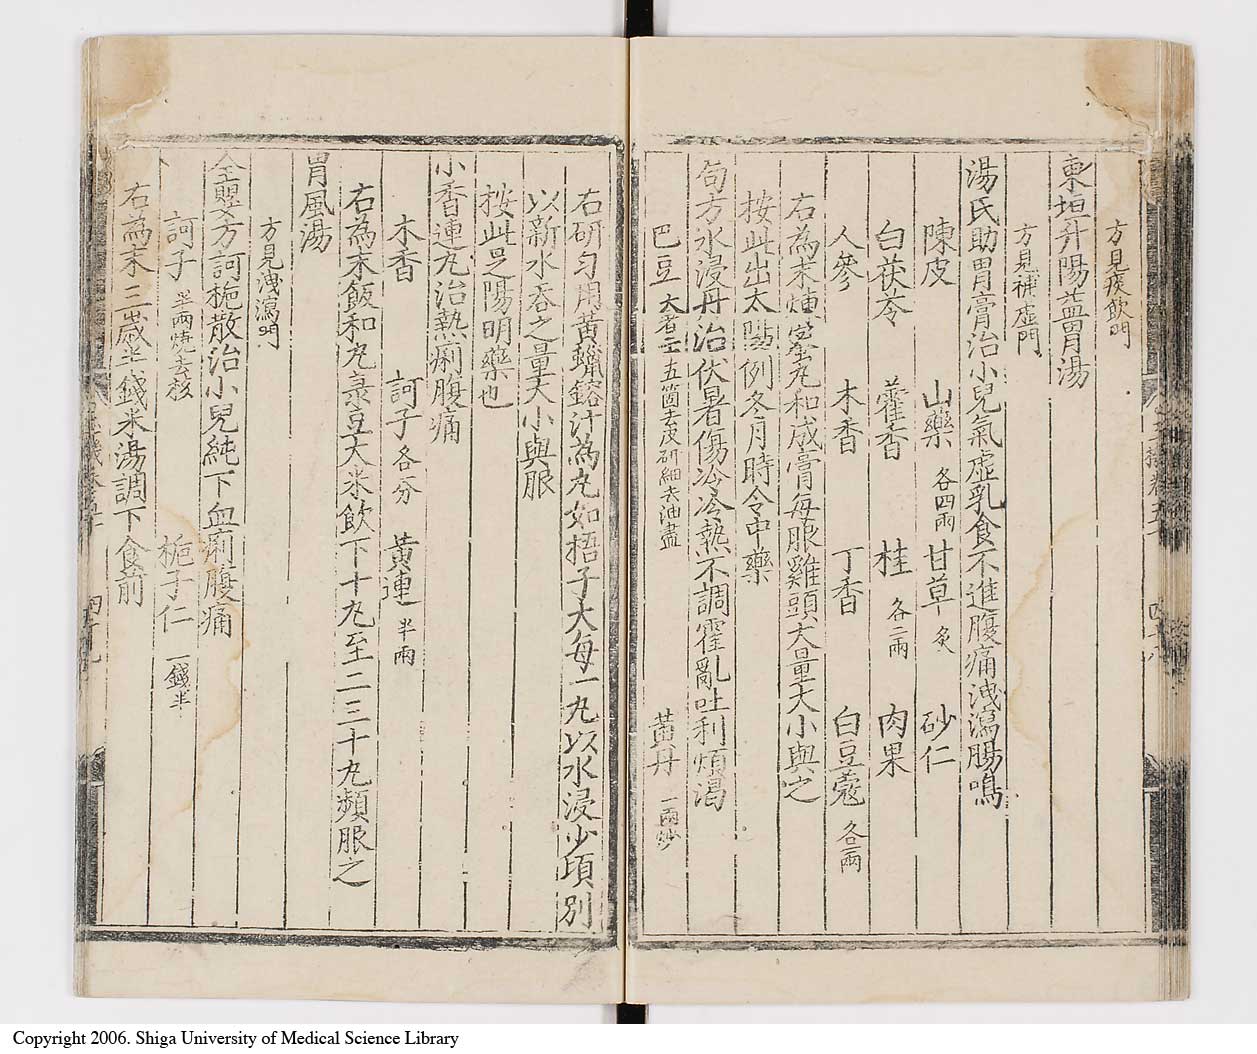 方見痰飲門
東垣升陽益胃湯
方見補虛門
湯氏助胃膏治小兒氣虛乳食不進腹痛洩瀉腸鳴
陳皮 山藥 各四兩 甘草 炙 砂仁
白茯苓 藿香 桂 各二兩 肉果
人參 木香 丁香 白豆蔻 各一兩
右為末煉蜜丸和成膏每服雞頭大量大小與之
按此出太陽例冬月時令中藥
句方水浸丹治伏暑傷冷冷熱不調霍亂吐利煩渴
巴豆 大者二十五箇去皮研細去油盡 黃丹 一兩炒
右研勻用黃蠟鎔汁為丸如梧子大每一丸以水浸少頃別
以新水吞之量大小與服
按此足陽明藥也
小香連丸治熱痢腹痛
木香 訶子 各分 黃連 半兩
右為末飯和丸彔豆大米飲下十丸至二三十丸頻服之
胃風湯
方見洩瀉門
全嬰方訶梔散治小兒純下血痢腹痛
訶子 半兩燒去核 梔子仁 一錢半
右為末三歲半錢米湯調下食前
Copyright 2006. Shiga University of Medical Science Library